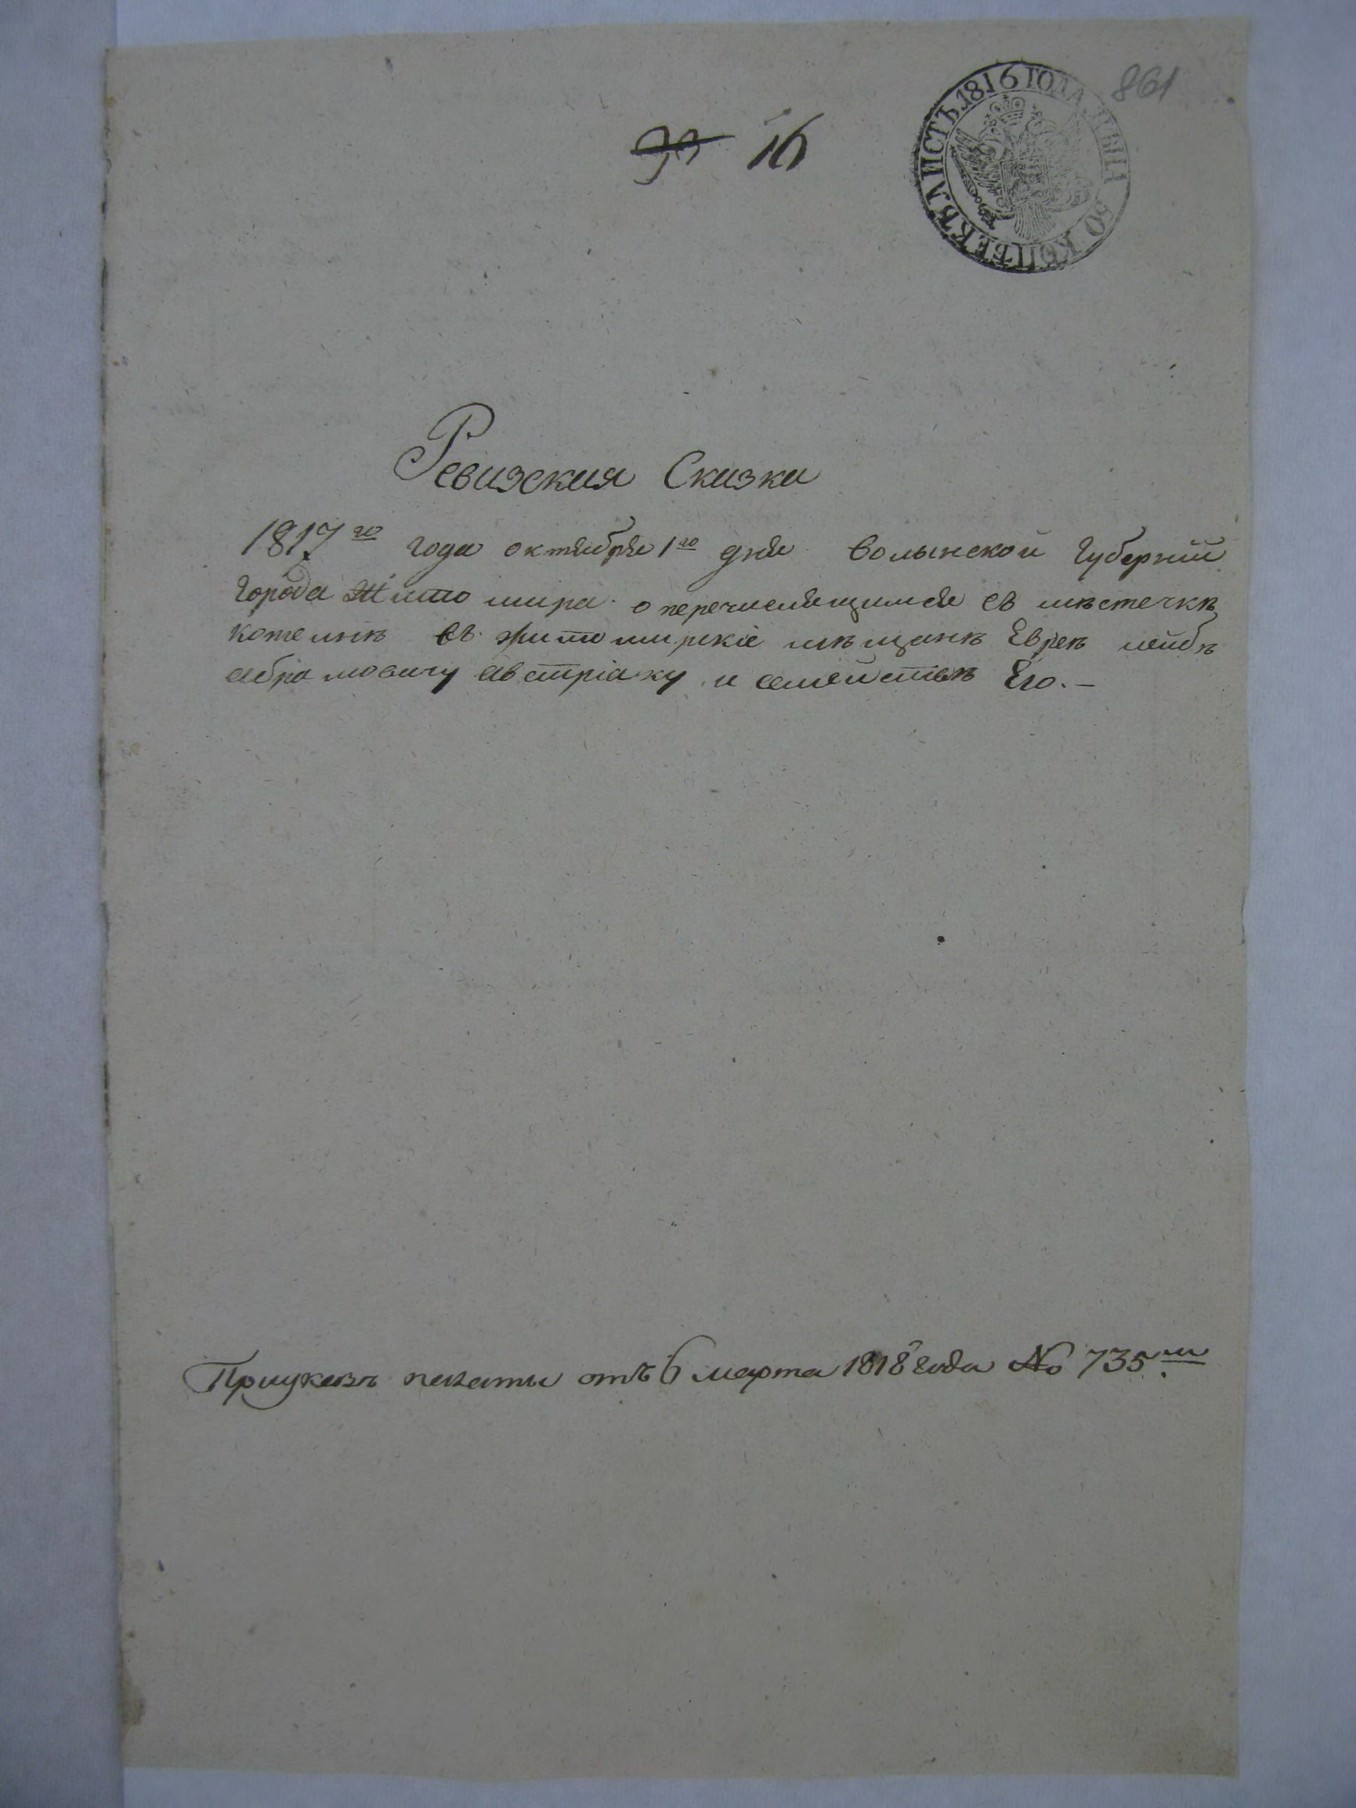 861
30 16
ЛИСТЪ 1816 ГОДА ЦѢНА 50 КОПѢЕКЪ
Ревизския Сказки
1817го года октября 1го дня волынской губернии
города Житомира о перечислящимся въ местечкѣ
котелнѣ въ житомирские мѣщанѣ Еврѣ лейбѣ
абрамовичу австріаку и семействѣ Его. –
Приуказѣ палаты отъ 6 марта 1818 года No 735м